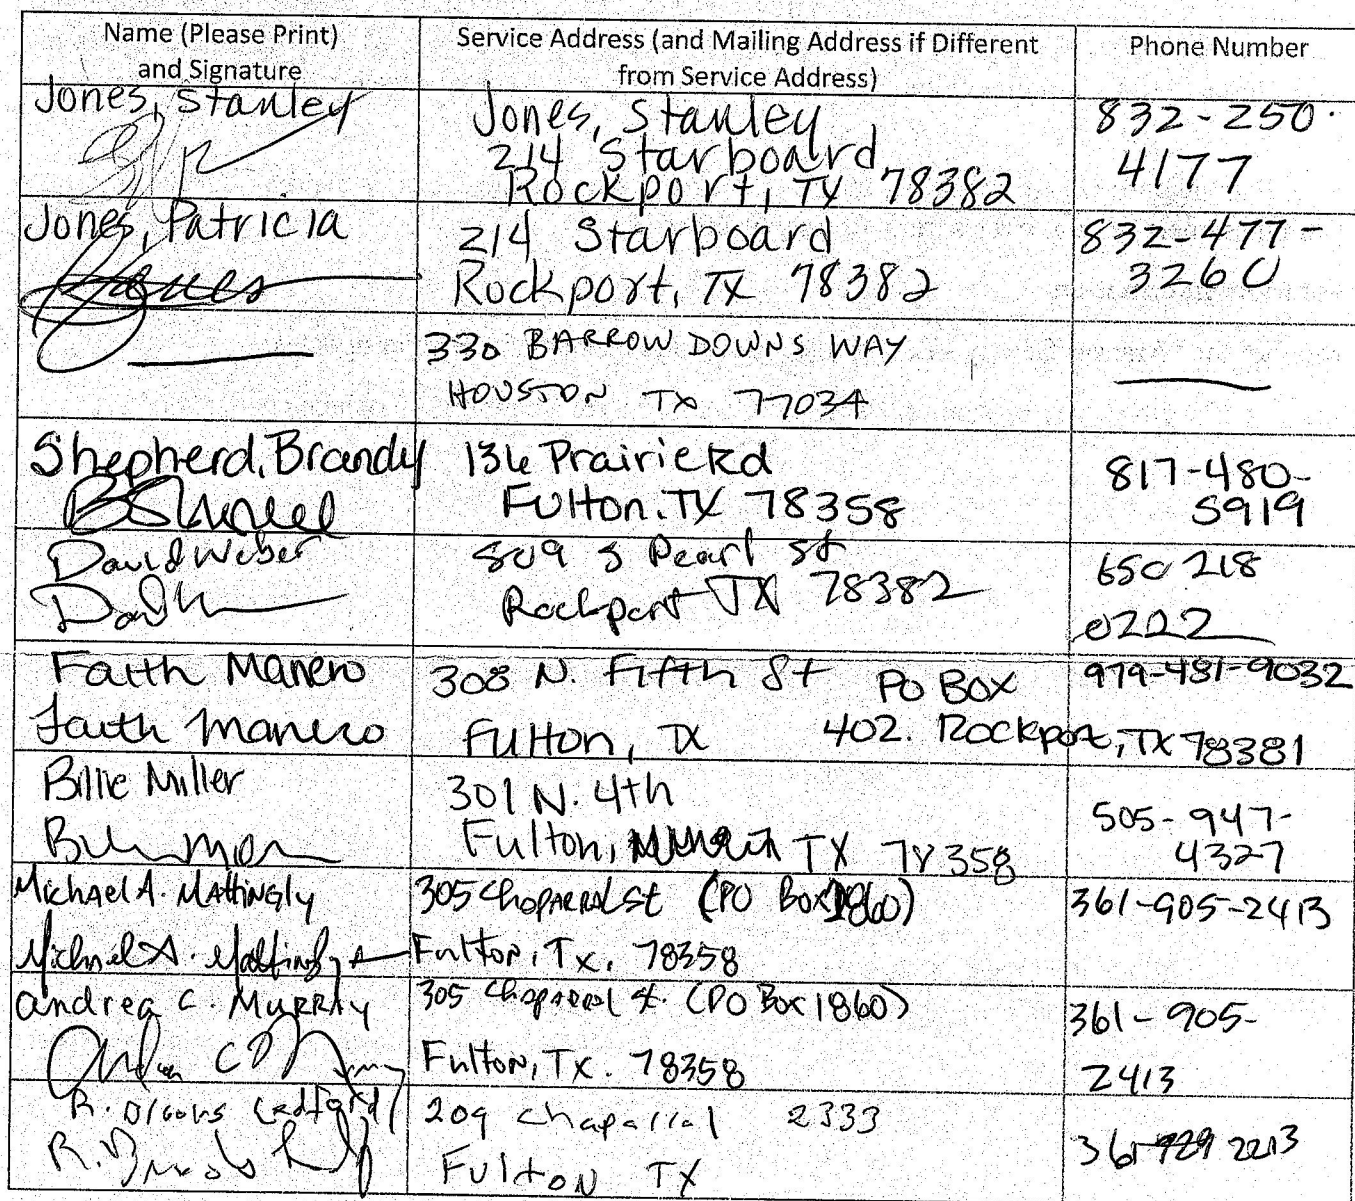 Name (Please Print)
and Signature
Service Address (and Mailing Address if Different
from Service Address)
Phone Number
Jones, Stanley
Jones, Stanley
214 Starboard
Rockport, TX 78382
832-250-
4177
Jones, Patricia
Jones
214 Starboard
Rockport, TX 78382
832-477-
3260
330 BARROW DOWNS WAY
HOUSTON TX 77034
Shepherd, Brandy
136 Prairie Rd
Fulton, TX 78358
817-480-
5919
David Weber
809 S Pearl St
Rockport TX 78382
650 218
0222
Faith Manero
Faith Manero
308 N. Fifth St PO Box
Fulton, TX 402. Rockport, TX 78381
979-481-9032
Billie Miller
301 N. 4th
Fulton, TX 78358
505-947-
4327
Michael A. Mattingly
Michael A. Mattingly
305 Chaparral St (PO Box 1860)
Fulton, Tx. 78358
361-905-2413
Andrea C. Murray
305 Chaparral St. (PO Box 1860)
Fulton, Tx. 78358
361-905-
2413
R.
R.
209 Chaparral 2333
Fulton TX
361-729 2213